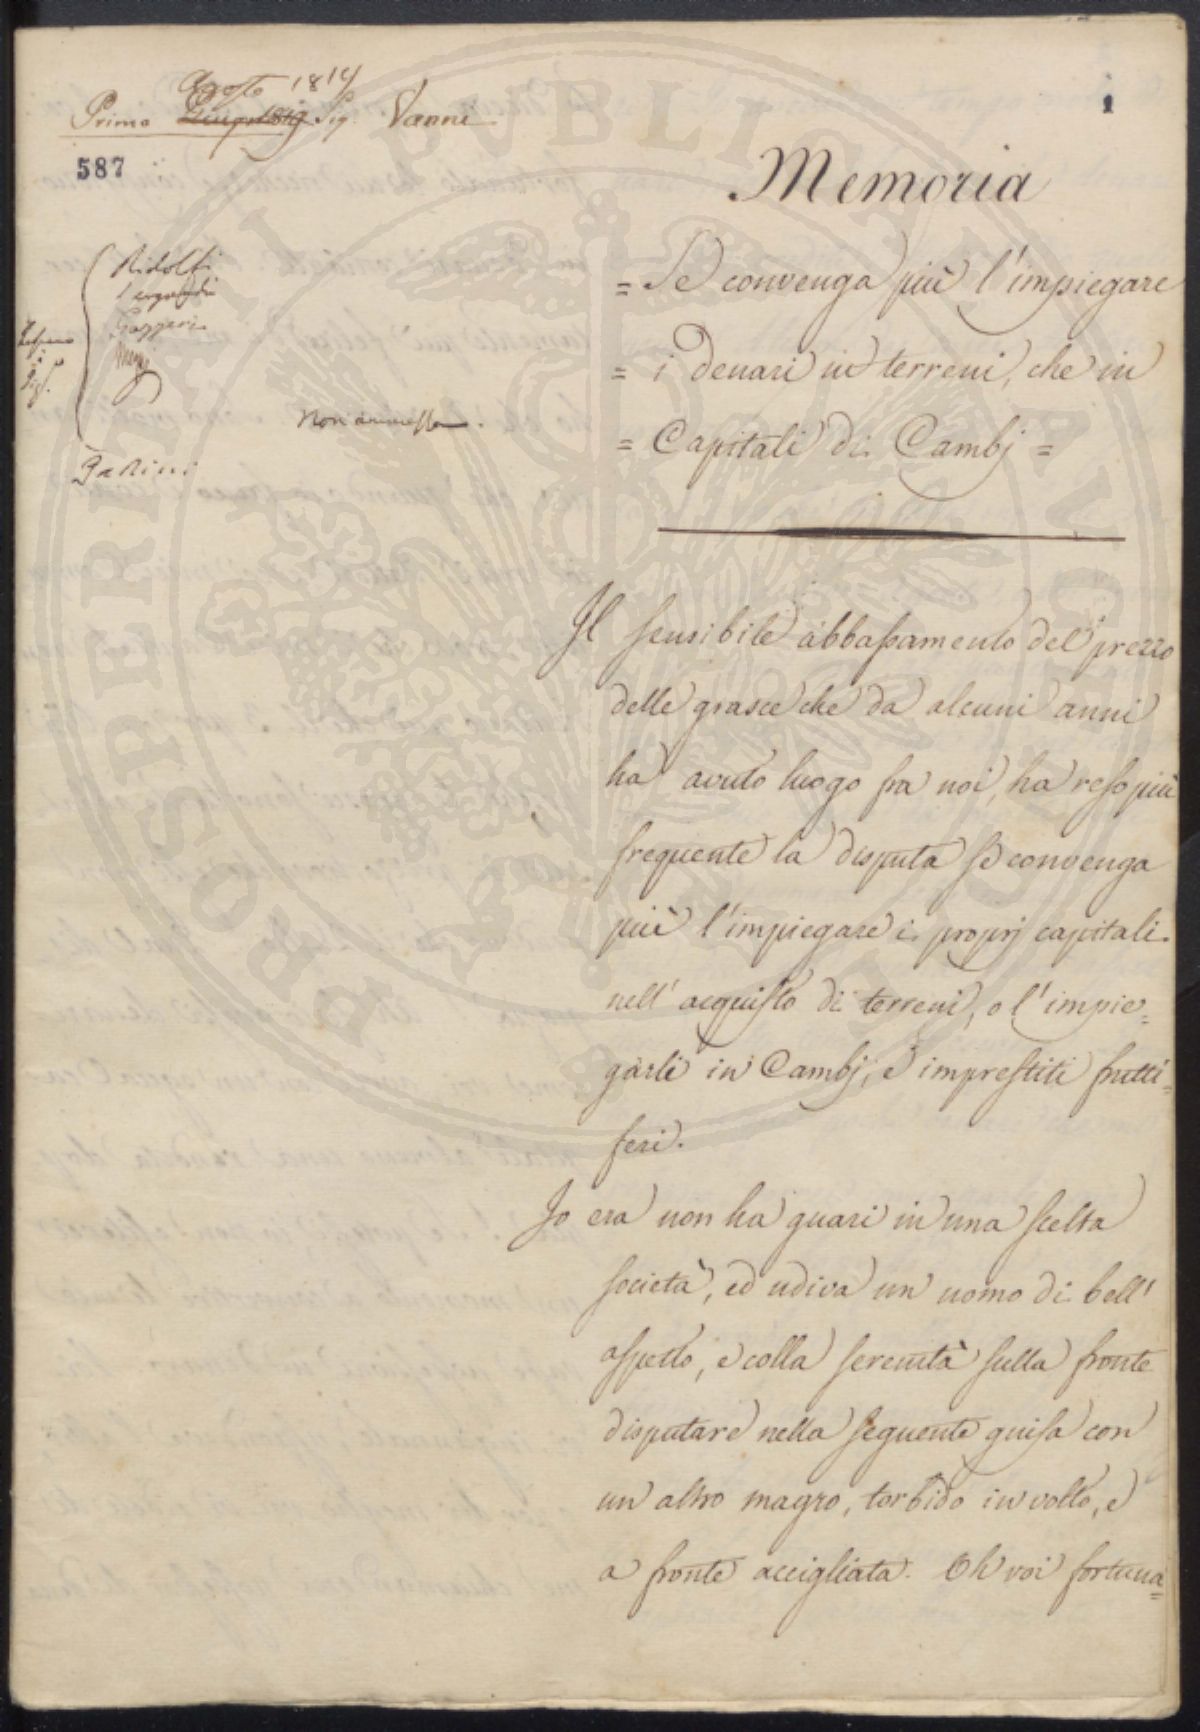 Agosto 1819
Primo Sig. Vanni
587
1
Memoria
Ridolfi
Gazzeri
Non ammessa.
= Se convenga più l'impiegare
= i denari in terreni, che in
= Capitali di Cambj =
Il sensibile abbassamento del prezzo
delle grasce che da alcuni anni
ha avuto luogo fra noi, ha reso più
frequente la disputa se convenga
più l'impiegare i proprj capitali
nell'acquisto di terreni, o l'impie=
garli in Cambj, e imprestiti frutti=
feri.
Io era non ha guari in una scelta
società, ed udiva un uomo di bell'
aspetto, e colla serenità sulla fronte
disputare nella seguente guisa con
un altro magro, torbido in volto, e
a fronte accigliata. Oh voi fortuna=
PROSPERITATI PUBLICAE AUGENDAE